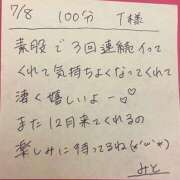 7/8 100分 T様
素股で3回連続イって
くれて気持ちよくなってくれて
凄く嬉しいよー♡
また12月来てくれるの
楽しみに待ってるね(*'ω'*)
みと